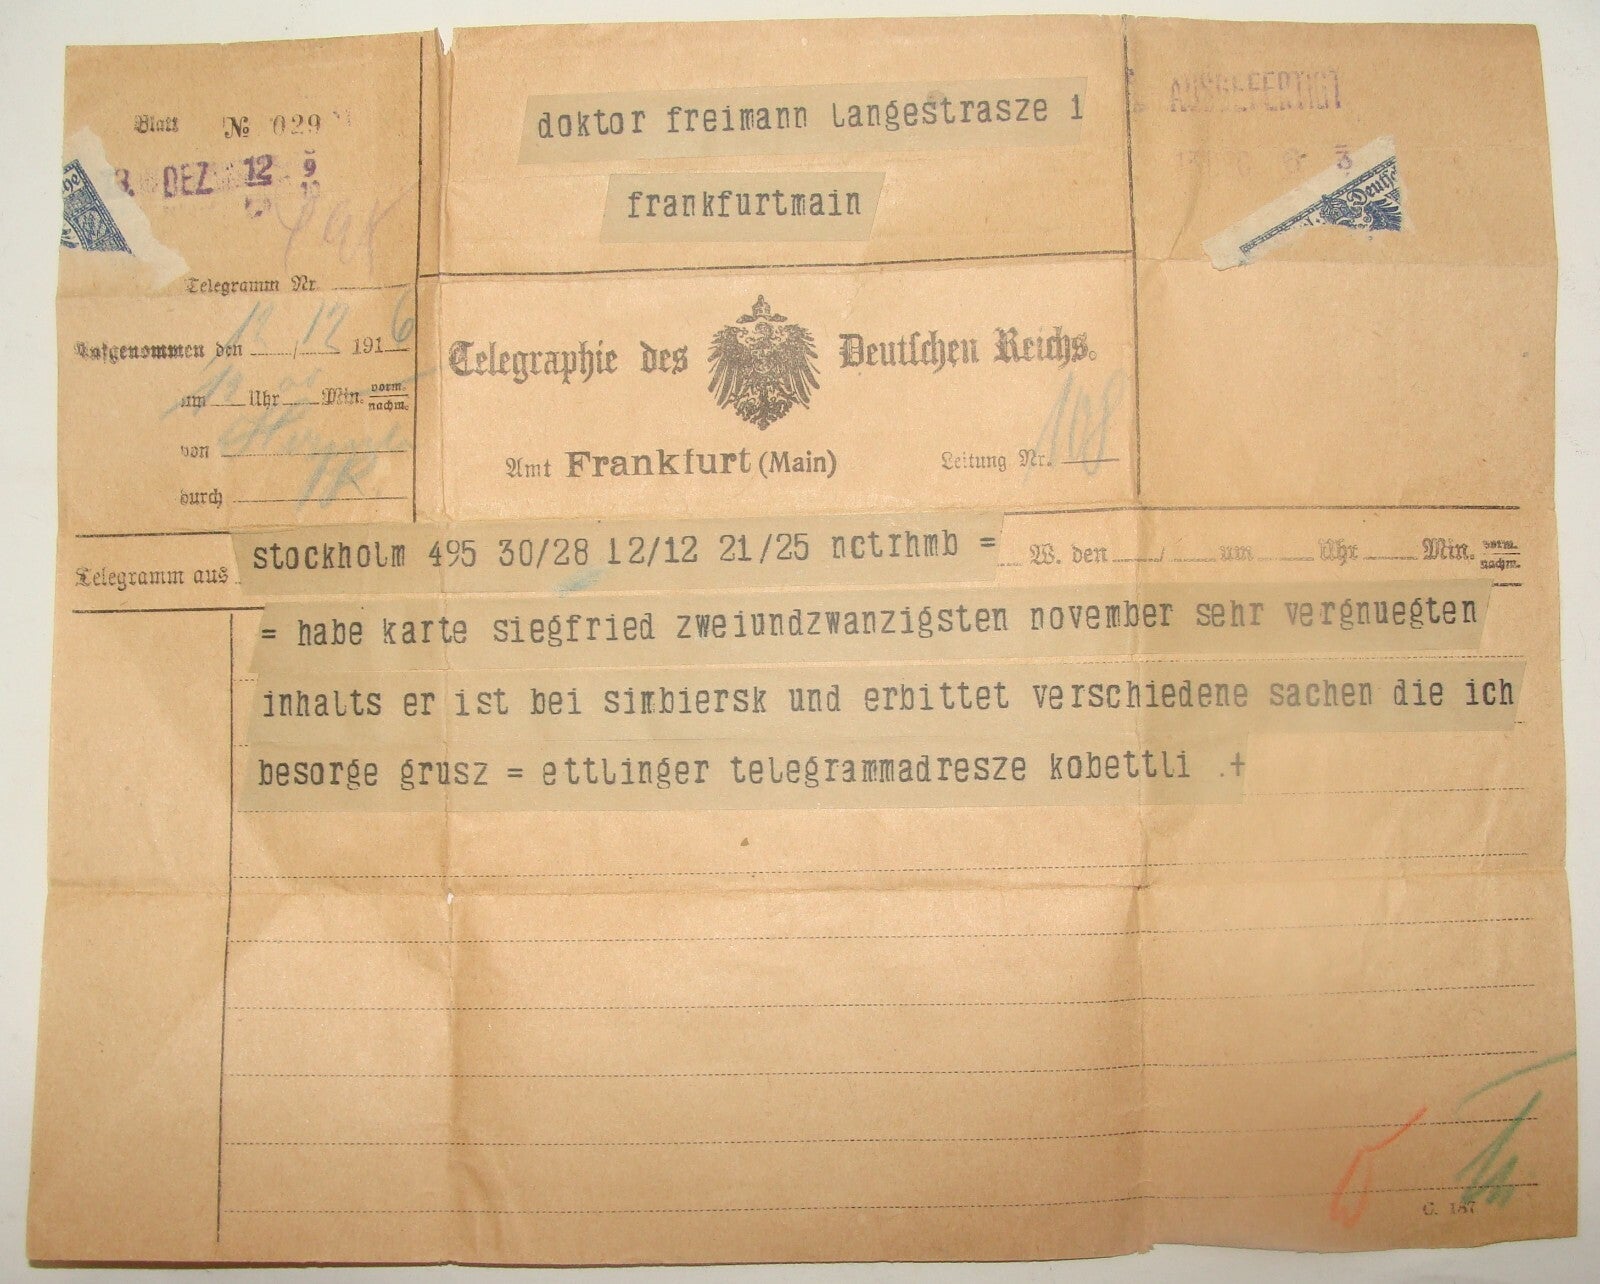 Blatt № 029
DEZ 12 9
AUSGEFERTIGT
doktor freimann langestrasze 1
frankfurtmain
Telegramm Nr.
Aufgenommen den 12/12 1916
um 12 Uhr Min. vorm. nachm.
von
durch
Telegraphie des Deutschen Reichs.
Amt Frankfurt (Main)
Leitung Nr. 108
Telegramm aus stockholm 495 30/28 12/12 21/25 nctrhmb = W. den / um Uhr Min. vorm. nachm.
= habe karte siegfried zweiundzwanzigsten november sehr vergnuegten
inhalts er ist bei simbiersk und erbittet verschiedene sachen die ich
besorge grusz = ettlinger telegrammadresze kobettli .+
C. 187